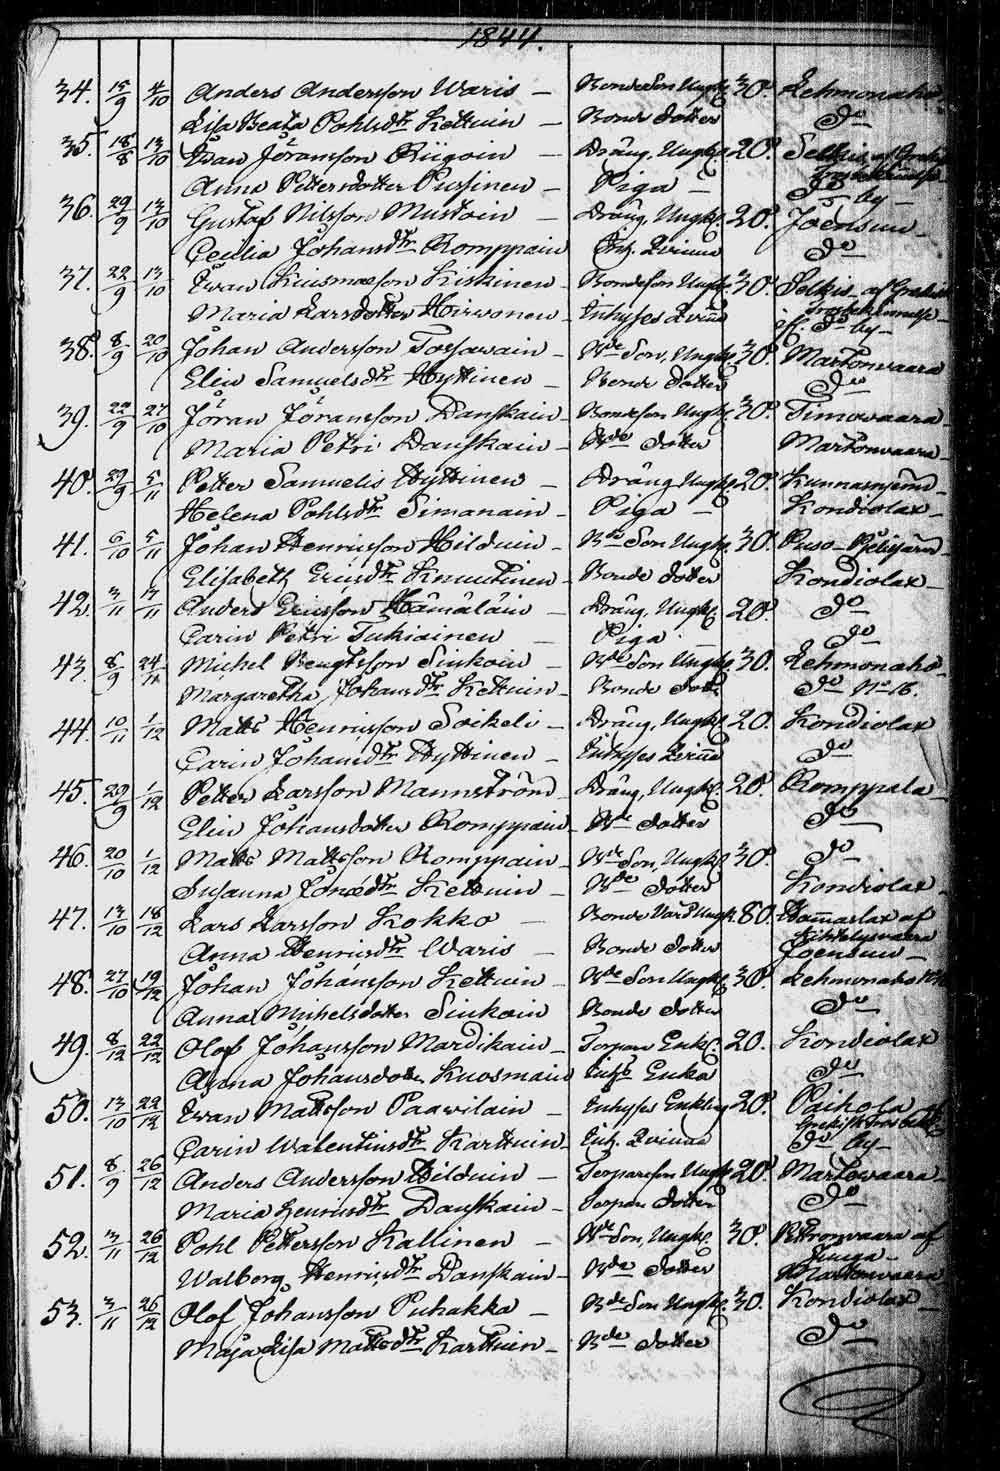 1844.
34. 15/9 4/10 Anders Andersson Waris — Bondeson Ungk. 30. Lehmonaho
Lisa Beata Pohlsdtr Kettuin — Bonde dotter do
35. 18/8 13/10 Iwan Jöransson Riigoin — Dräng, Ungk. 20. Selkis af Grekiska
Anna Pettersdotter Pussinen — Piga — do by —
36. 29/9 13/10 Gustaf Nilsson Mustoin — Dräng, Ungk. 20. Joensuu —
Cecilia Johansdtr Romppain Inh. Qvinna do
37. 22/9 13/10 Iwan Kuismason Kiskinen — Bondeson Ungk. 30. Selkis — af Grekiska
Maria Larsdotter Hirwonen — Inhyses Qvinna do by —
38. 8/9 20/10 Johan Andersson Torswain — Bde Son, Ungk. 30. Martonvaara
Elin Samuelsdtr Hyttinen — Bonde dotter do
39. 22/9 27/10 Jöran Jöransson Danskain — Bondeson Ungk. 30. Timovaara —
Maria Petri Danskain — Bde dotter Martonvaara —
40. 29/9 5/11 Petter Samuelis Hyttinen — Dräng Ungk. 20.
Helena Pohlsdtr Simanain — Piga — Kondiolax —
41. 6/10 5/11 Johan Henricsson Hilduin — Bde Son Ungk. 30. Puso —
Elisabeth Ericsdtr Knuutinen — Bonde dotter Kondiolax —
42. 3/11 Anders Ericsson Hämäläin — Dräng, Ungk. 20. do
Carin Petri Tukiainen — Piga — do
43. 8/9 24/11 Michel Bengtsson Sinkoin — Bde Son Ungk. 30. Lehmonaho
Margaretha Johansdtr Kettuin — Bonde dotter do No 16.
44. 10/11 1/12 Matts Henricsson Soikeli — Dräng, Ungk. 20. Kondiolax
Carin Johansdtr Hyttinen — Inhyses Qvinna do
45. 29/9 1/12 Petter Larsson Mannström — Dräng, Ungk. 20. Romppala
Elin Johansdotter Romppain — Bde dotter do
46. 20/10 1/12 Matts Mattsson Romppain — Bde Son, Ungk. 30. do
Susanna Jonædtr Kettuin — Bde dotter Kondiolax —
47. 13/10 18/12 Lars Larsson Kokko — Bonde Ungk. 80. Hammaslax af
Anna Henricsdtr Waris — Bonde dotter Joensuu —
48. 27/10 19/12 Johan Johansson Kettuin — Bde Son Ungk. 30. Lehmonaho
Anna Michelsdotter Sinkoin Bonde dotter do
49. 8/12 22/12 Olof Johansson Mardikain — Torpare Enkl. 20. Kondiolax
Anna Johansdotter Kuosmain Inhs Enka do
50. 13/10 22/12 Iwan Mattsson Paawilain — Inhyses Enkling 20. Paihola af
Carin Walentinsdtr Karttuin — Inh. Qvinna do by —
51. 8/9 26/12 Anders Andersson Hilduin — Torpareson Ungk. 20. Martowaara —
Maria Henricsdtr Danskain — Torpare dotter do
52. 3/11 26/12 Pohl Pettersson Kallinen — Bde Son, Ungk. 30. Petronvaara af
Juuga —
Walborg Henricsdtr Danskain — Bde dotter Martonvaara
53. 3/11 26/12 Olof Johansson Puhakka — Bde Son Ungk. 30. Kondiolax —
Maja Lisa Mattsdtr Karttuin — Bde dotter do